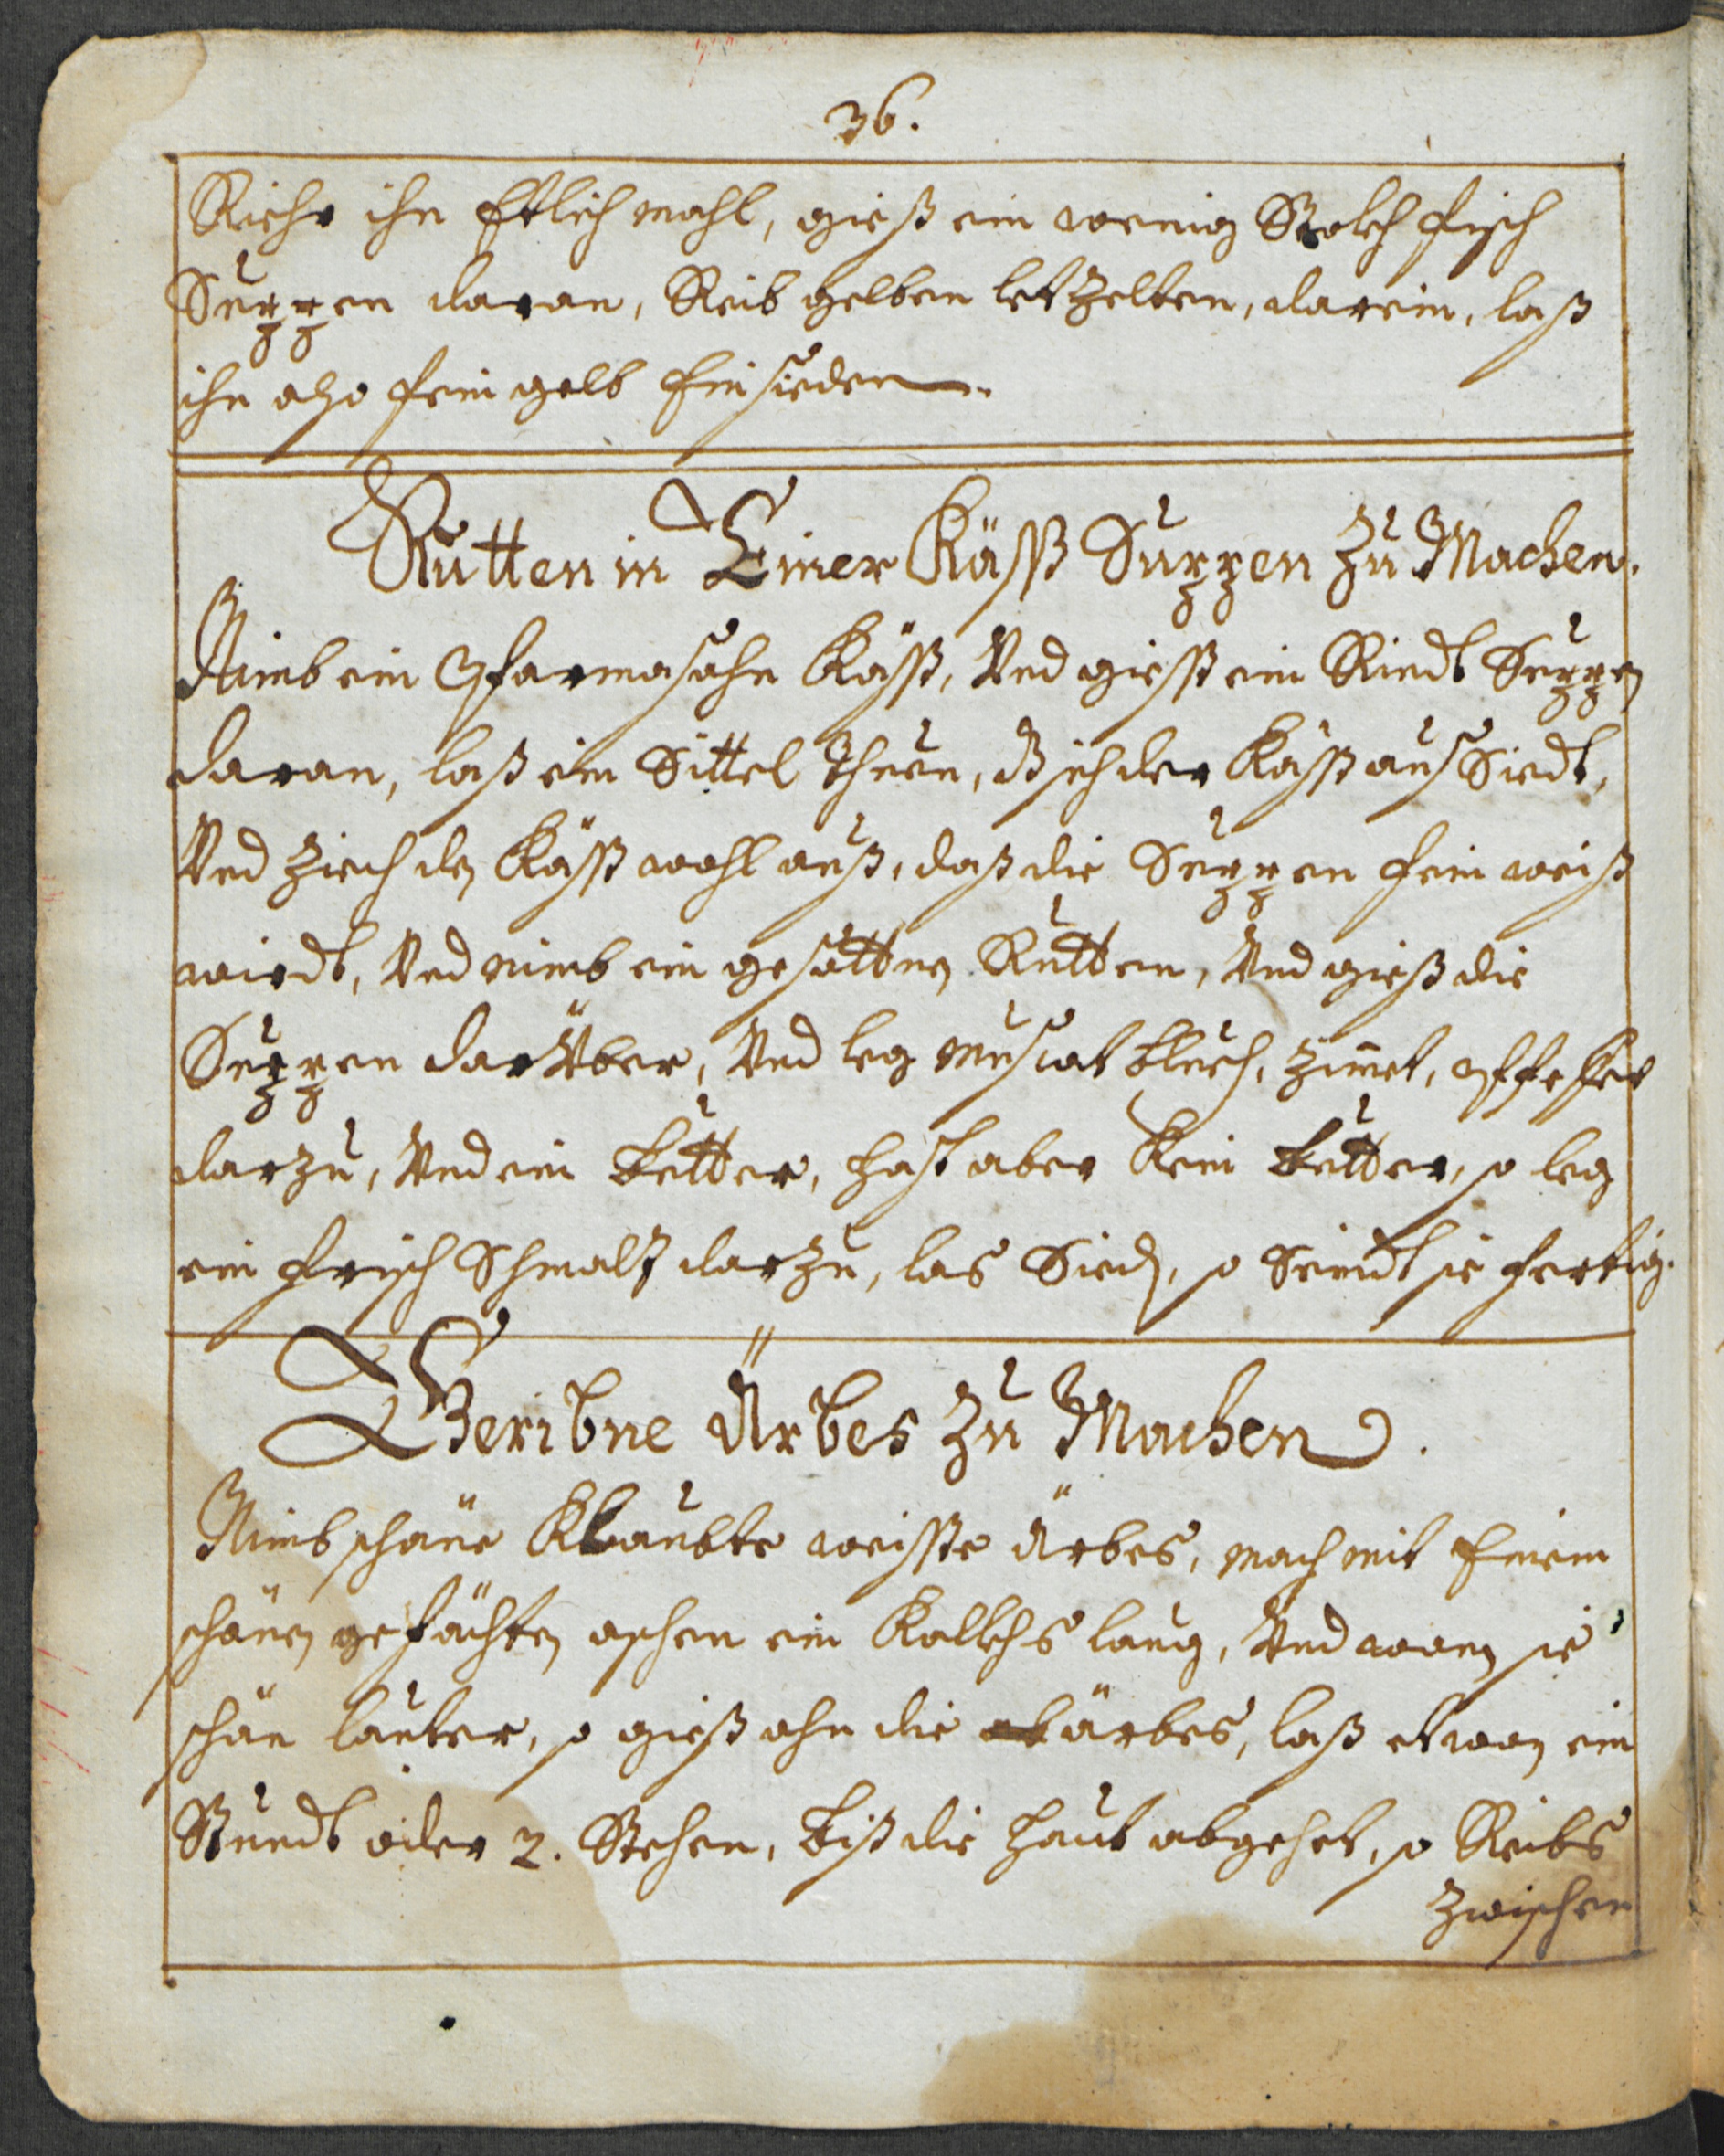 36.
Riehr ihn Etlich mahl, gieß ein wenig Stokh fisch
Suppen daran, Reib gelben letzelten, darein, laß
ihn also fein gelb Einsieden
Rutten in Einer Käß Suppen zu Machen.
Nimb ein Pfarmasohn Käß, Und gieß ein Rindt Suppen
daran, laß ein Sittel Thuen, dß sich der Käß auß Siedt,
Und ziech den Käß wohl auß, daß die Suppen fein weiß
wirdt, Und nimb ein gesottne Rutten, Und gieß die
Suppen darüber, Und leg muscat blueh, Zimet, pfeffer
darzu, Und ein butter, hast aber kein butter, so leg
ein frisch Schmaltz darzu, las Sieden, so Seindt sie fertig.
Geribne Ärbes zu Machen.
Nimb schöne Klaubte weisse ärbes, mach mit Einem
schönen gefächten aschen ein Kalchs laug, Und wann sie
schön lauter, so gieß ahn die ärbes, laß etwan ein
Stundt oder 2. Stehen, biß die haut abgehet, so Reibs
zwischen